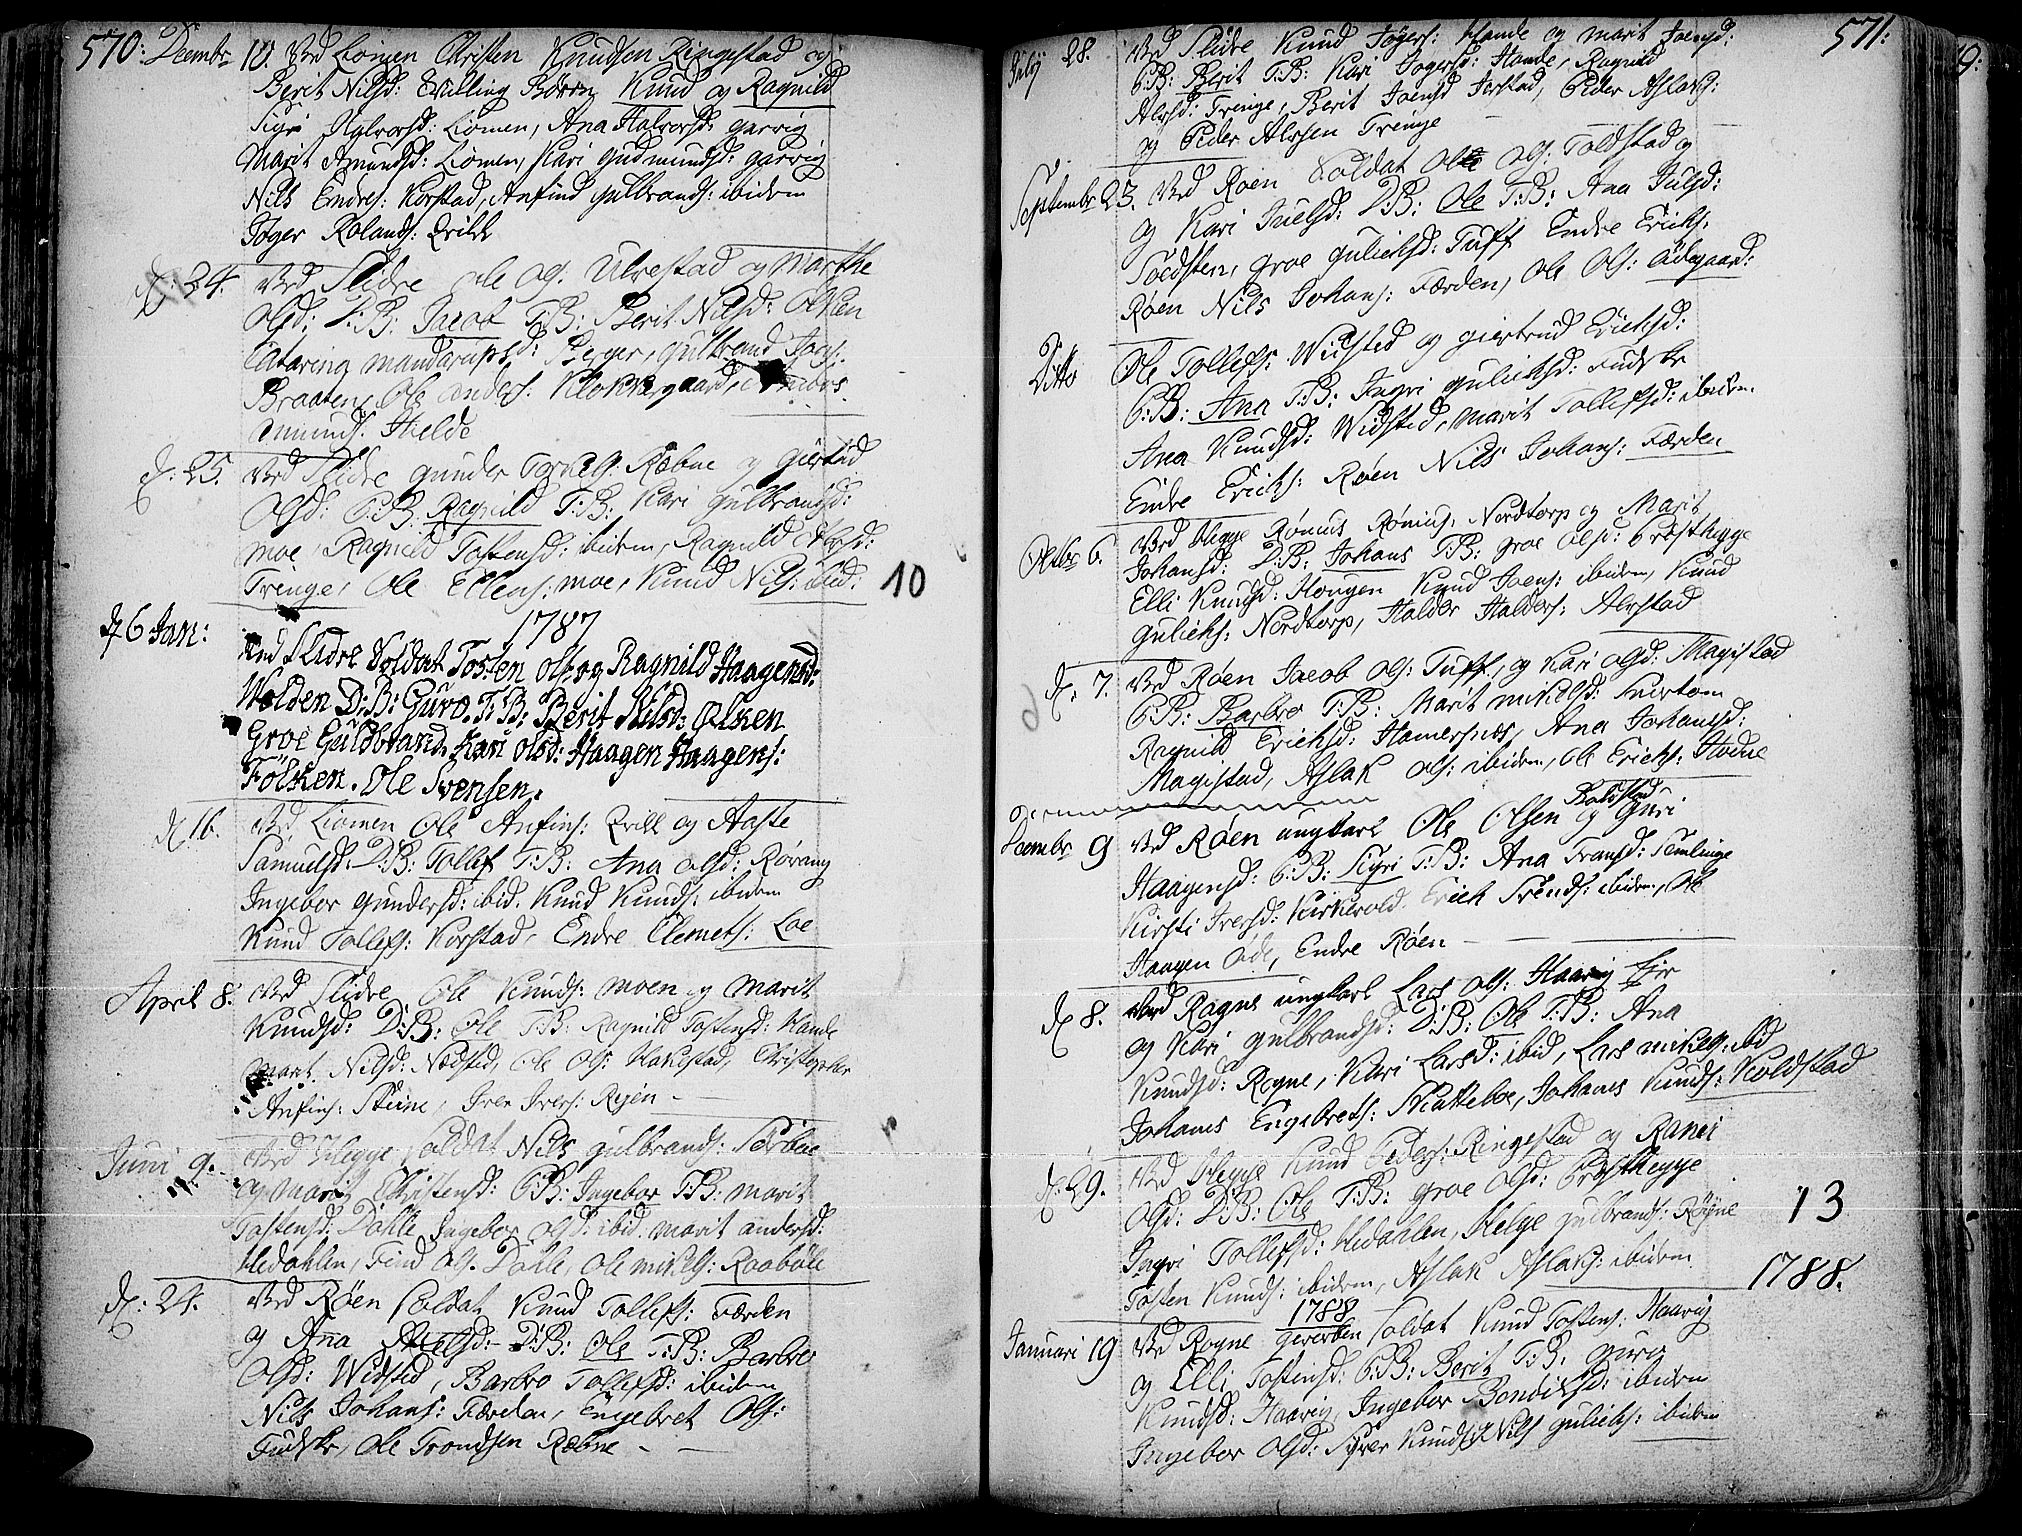 570: Decembr 10. Ved Liomen Christen Knudsen Ringestad og
Berit Nilsd: Tvilling Børn Knud og Ragnild
Sigri Halvorsd: Liomen, Ana Halvorsd: garvig
Marit Amundsd: Liomen, Kari Gudmundsd: garvig
Nils Endres: Korstad, Anfind gulbrands: ibidem
Joger Rolands: Qvile
d: 24. Ved Slidre ole ols: Ulvestad og Marthe
olsd: D:B: Jacob T:B: Berit Nilsd: Olken
Catarina mandrupsd: Berger, gulbrand Jons:
Braaten, Ole anders: Klokkergaard,
Amunds: Hielde
d: 25. Ved Slidre gunder Torkels: Røbne og Giertrud
Olsd: P:B: Ragnild T:B: Kari gulbrandsd:
moe, Ragnild Tostensd: ibidem, Ragnild Alvsd:
Trenge, Ole Ellens: moe, Knud Nils: ibid: 10
1787
d 6 Jan:
Ved Slidre Soldat Tosten ols: og Ragnild Haagensd:
Wolden D:B: Guro. T:B: Berit Nilsd: Olken
Groe Guldbrand. Kari olsd: Haagen Haagens:
Følken. Ole Svensen.
d 16. Ved Liomen Ole Anfins: Qvile og Aaste
Samuelsd: D:B: Tollef T:B: Ana olsd: Rørang
Ingebor gundersd: ibid. Knud Knuds: ibidem
Knud Tollefs: Korstad, Endre Clemets: Loe
April 8. Ved Slidre Ole Knuds: moen og Marit
Knudsd: D:B: Ole T:B: Ragnild Tostensd: Hande
Marit Nilsd: Nedsted, Ole Ols: Hakestad, Christopher
Anfins: Skine, Iver Ivers: Ryen
Juni 9. Ved Hegge Soldat Nils gulbrands: Sørbøe
og Marit Christensd: P:B: Ingebor T:B: marit
Tostensd: Dahle Ingebor olsd: ibid. marit andersd:
Hedahlen, Find ols. Dahle, ole mikels: Raabøle
d: 24. Ved Røen Soldat Knud Tollefs: Færden
og Ana Axelsd: D:B: Ole T:B: Barbro
Olsd: Widsted, Barbro Tollefsd: ibidem
Nils Johans: Færden, Engebret Ols:
Fudske, Ole Trondsen Røbne
571:
Julij 28. Ved Slidre Knud Jogers: Hande og marit Joensd:
P:B: Berit T:B: Kari Jogersd: Hande, Ragnild
Alvsd: Trenge, Berit Joensd Jerstad, Peder Aslaks:
og Peder Alvsen Trenge
Septembr 23. Ved Røen Soldat Ole ols: Toldstad og
og Kari Juelsd: D:B: Ole T:B: Ana Julsd:
Soldsten, groe gulichsd: Tuff Endre Erichs:
Røen Nils Johans: Færden, Ole Ols: Ødegaard:
Ditto Ole Tollefs: Widsted og giertrud Erichsd:
P:B: Ana T:B: Ingri gulichsd: Fudske
Ana Knudsd: Widsted, marit Tollefsd: ibidem
Endre Erichs: Røen Nils Johans: Færden
Octobr 6. Ved Hegge Rønius Rønius: Nordtorp og Marit
Johansd: D:B: Johans T:B: groe olsd: Prosthegge
Elli Knudsd: Hougen Knud Joens: ibidem, Knud
gulichs: Nordtorp, Haldor Haldors: Alvstad
d: 7. Ved Røen Jacob ols: Tuff, og Kari olsd: Magistad
P:B: Barbro T:B: Marit mikelsd:
Ragnild Erichsd: Hamersnes, Ana Johansd:
Magistad, Aslak ols: ibidem, Ole Erichs: Hovde
Decembr 9 Ved Røen ungkarl Ole Olsen Bolstad og Guri
Haagensd: P:B: Sigri T:B: Ana Fransd: Semlinge
Kirsti Iversd: Kirkevold. Erich Svends: ibidem, Ole
Haagen Øde, Endre Røen
d 8. Ved Rogne ungkarl Lars ols: Haavig
og Kari gulbrandsd: D:B: Ole T:B: Ana
Knudsd: Rogne, Kari Larsd: ibid, Lars mikels: ibid
Johanes Engebrets: Skattebo, Johanes Knuds: Koldstad
d: 29. Ved Hegge Knud Peders: Ringestad og Ranei
olsd: D:B: Ole T:B: groe olsd: Prosthegge
Ingri Tollefsd: Hedahlen, Helge gulbrands: Røyne 13
Tosten Knuds: ibidem, Aslak Aslaks: ibidem
1788.
1788
Januari 19 Ved Rogne gevorben Soldat Knud Tostens: Haavig
og Elli Tostensd: P:B: Berit T:B: guro
Knudsd: Haavig, Ingebor Bendixsd: ibidem
Ingebor Olsd: Syver Knuds: Nils gulichs: ibidem